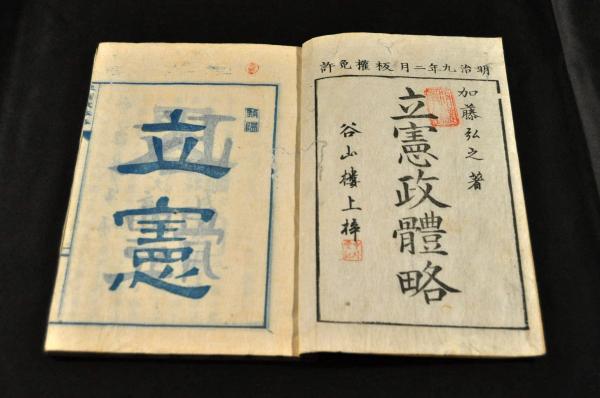 明治九年二月板權免許
加藤弘之著
立憲政體略
谷山樓上梓
立憲